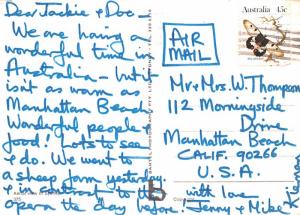 Dear Jackie & Doc –
We are having a
wonderful time in
Australia – but it
isn't as warm as
Manhattan Beach
Wonderful people &
food! Lots to see
& do. We went to
a sheep farm yesterday.
& in Central to the
opera the day before!
AIR
MAIL
Australia 45c
Mr & Mrs. W. Thompson
112 Morningside
Drive
Manhattan Beach
CALIF. 90266
U.S.A.
with love
Jenny & Mike